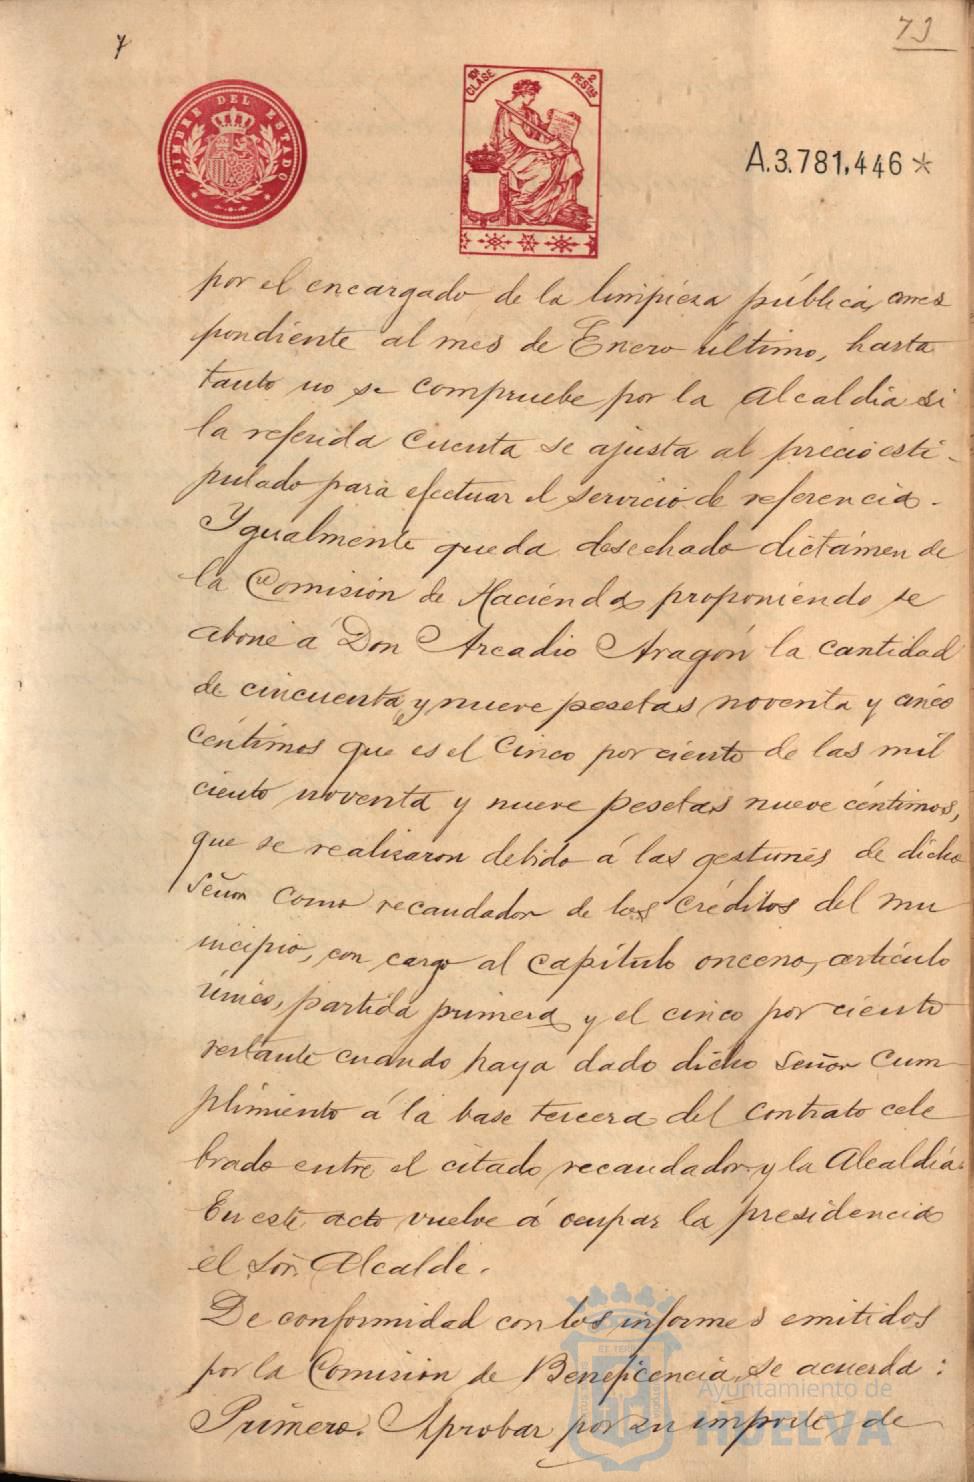 7
73
TIMBRE DEL ESTADO
EN CLASE 2 PESTAS
A.3.781,446*
por el encargado de la limpieza pública, corres
pondiente al mes de Enero último, hasta
tanto no se compruebe por la Alcaldía si
la referida cuenta se ajusta al precio esti-
pulado para efectuar el servicio de referencia.
Ygualmente queda desechado dictámen de
la Comisión de Hacienda proponiendo se
abone á Don Arcadio Aragón la cantidad
de cincuenta y nueve pesetas noventa y cinco
céntimos que es el cinco por ciento de las mil
ciento noventa y nueve pesetas nueve céntimos,
que se realizaron debido á las gestiones de dicho
Señor como recaudador de los créditos del mu
nicipio, con cargo al capítulo onceno, artículo
único, partida primera y el cinco por ciento
restante cuando haya dado dicho Señor cum-
plimiento á la base tercera del contrato cele
brado entre el citado recaudador y la Alcaldía.
En este acto vuelve á ocupar la presidencia
el Sor. Alcalde.
De conformidad con los informes emitidos
por la Comisión de Beneficencia, se acuerda:
Primero. Aprobar por su importe de
Ayuntamiento de
HUELVA